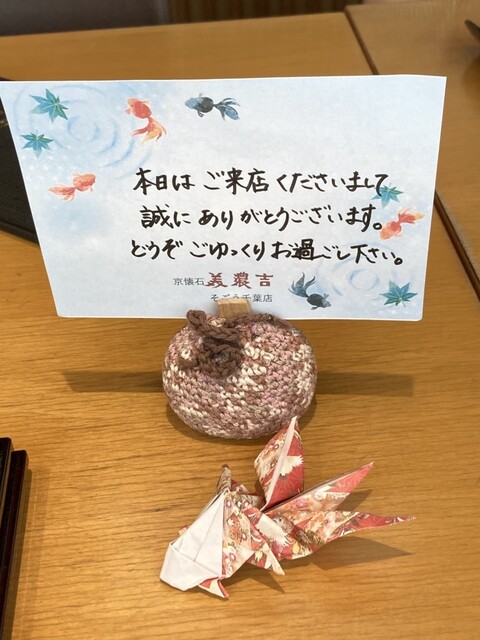 本日は ご来店くださいまして
誠に ありがとうございます。
どうぞ ごゆっくりお過ごし下さい。
京懐石 美濃吉
そごう千葉店